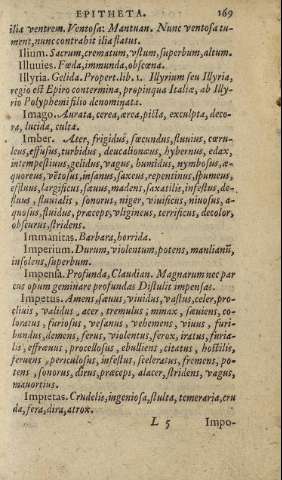 EPITHETA. 169
ilia ventrem. Ventosa: Mantuan. Nunc ventosa tu-
ment, nunc contrahit ilia flatus.
Ilium. Sacrum, crematum, vstum, superbum, altum.
Illuuies. Fœda, immunda, obscœna.
Illyria. Gelida. Propert. lib. 1. Illyrium seu Illyria,
regio est Epiro contermina, propinqua Italiæ, ab Illy-
rio Polyphemi filio denominata.
Imago. Aurata, cerea, ærea, picta, exculpta, deco-
ra, lucida, culta.
Imber. Ater, frigidus, sæcundus, fluuius, cæru-
leus, effusus, turbidus, deucalioneus, hybernus, edax,
intempestiuus, gelidus, vagus, humidus, nymbosus, a-
quoreus, vẽtosus, insanus, saxeus, repentinus, spumeus,
estiuus, largificus, sæuus, madens, saxatilis, infestus, de-
fluus, fluuialis, sonorus, niger, viuificus, niuosus, a-
quosus, fluidus, præceps, vligineus, terrificus, decolor,
obscurus, stridens.
Immanitas. Barbara, horrida.
Imperium. Durum, violentum, potens, manlianũ,
insolens, superbum.
Impensa. Profunda, Claudian. Magnarum nec par
cus opum geminare profundas Distulit impensas.
Impetus. Amens, sæuus, viuidus, vastus, celer, pro-
cliuis, validus, acer, tremulus, minax, sæuiens, co-
loratus, furiosus, vesanus, vehemens, viuus, furi-
bundus, demens, ferus, violentus, ferox, iratus, furia-
lis, effrænus, procellosus, ebulliens, citatus, hostilis,
feruens, periculosus, infestus, sceleratus, fremens, po-
tens, sonorus, dirus, præceps, alacer, stridens, vagus,
mauortius.
Impietas. Crudelis, ingeniosa, stulta, temeraria, cru
da, fera, dira, atrox.
L 5 Impo-